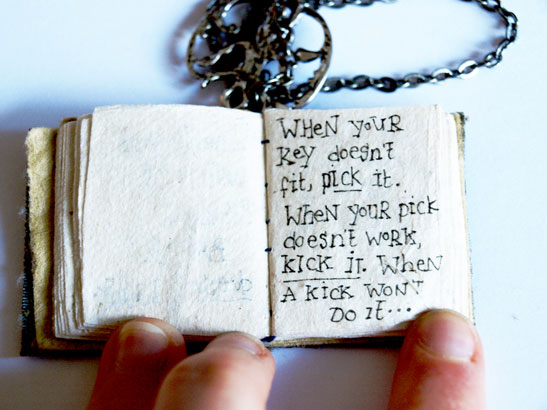 WHEN YOUR
Key doesn't
fit, pICK it.
WHEN YOUR pick
doesn't WORK,
KICK iT. WHEN
A KICK WON'T
DO IT...